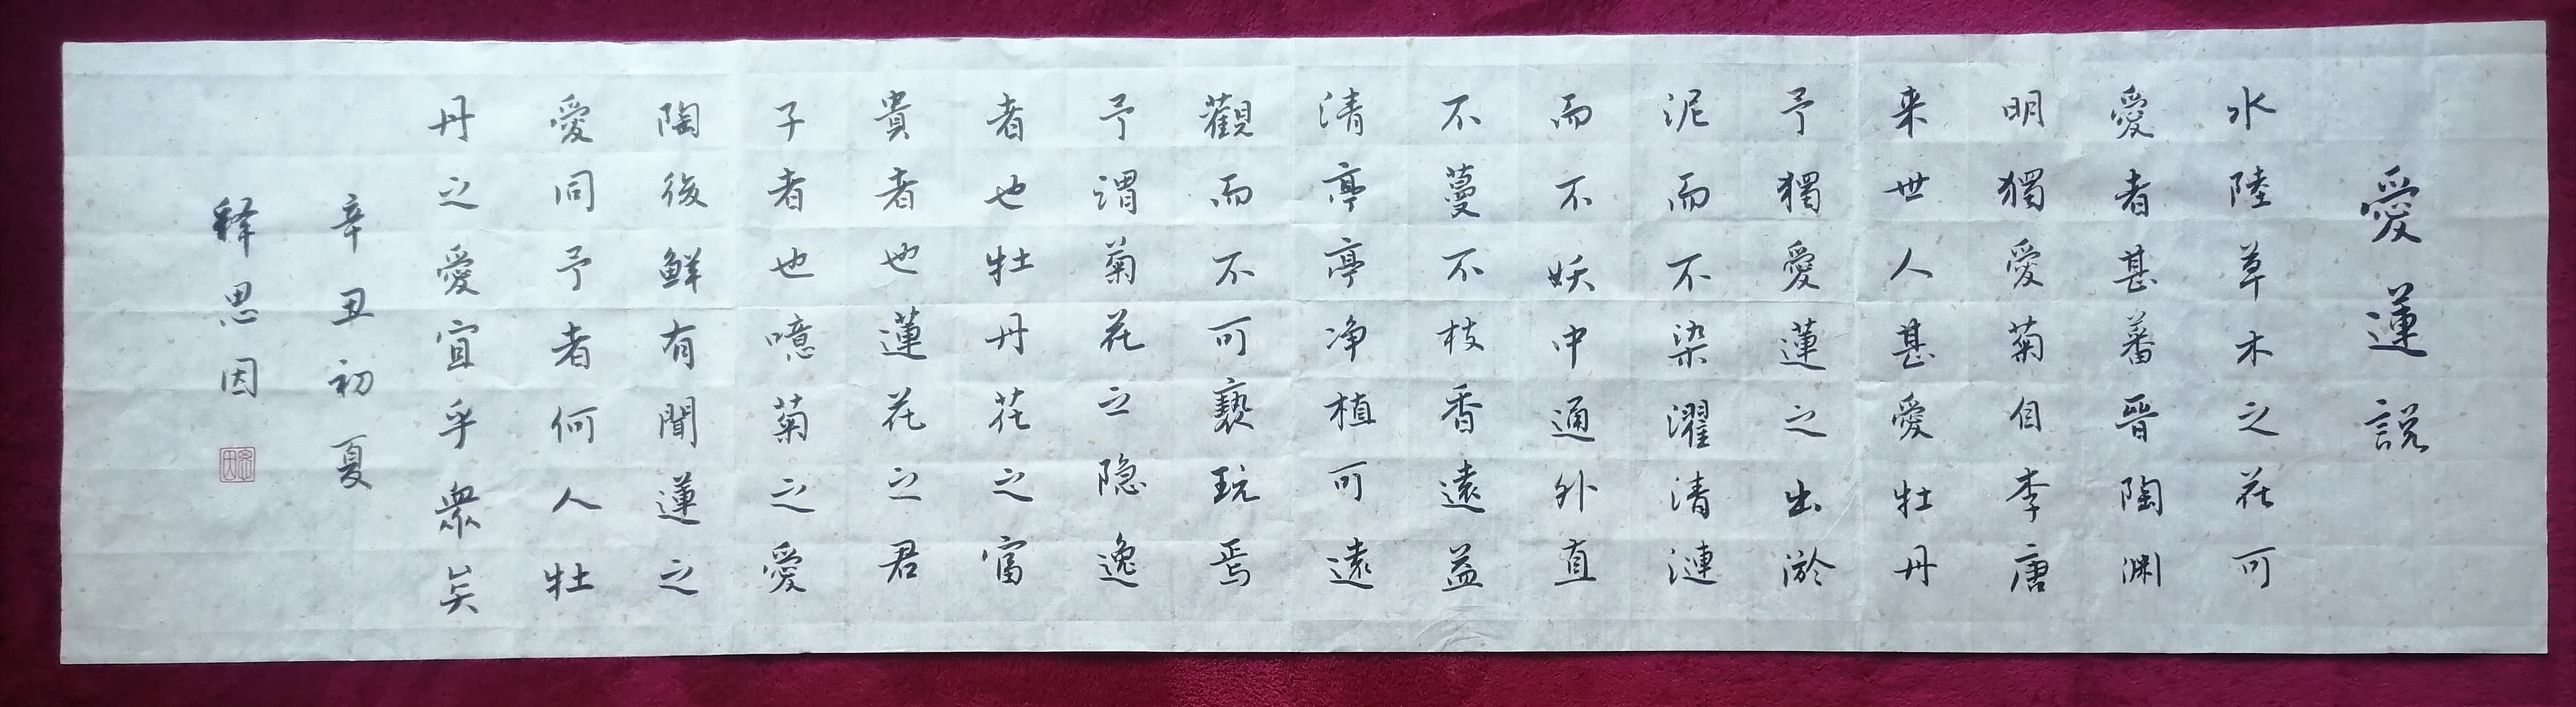 愛蓮説
水陸草木之花可
愛者甚蕃晉陶渊
明獨愛菊自李唐
来世人甚愛牡丹
予獨愛蓮之出淤
泥而不染濯清漣
而不妖中通外直
不蔓不枝香遠益
清亭亭净植可遠
觀而不可褻玩焉
予謂菊花之隐逸
者也牡丹花之富
貴者也蓮花之君
子者也噫菊之愛
陶後鮮有聞蓮之
愛同予者何人牡
丹之愛宜乎衆矣
辛丑初夏
释思因
思因